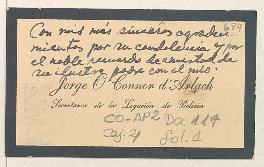 684
Con mis más sinceros agradeci-
mientos por su condolencia y por
el noble recuerdo de amistad de
su ilustre padre con el mío.
Jorge O'Connor d'Arlach
Secretario de la Legación de Bolivia
CO-AP2 Do 117
Caj. 21 Fol. 1